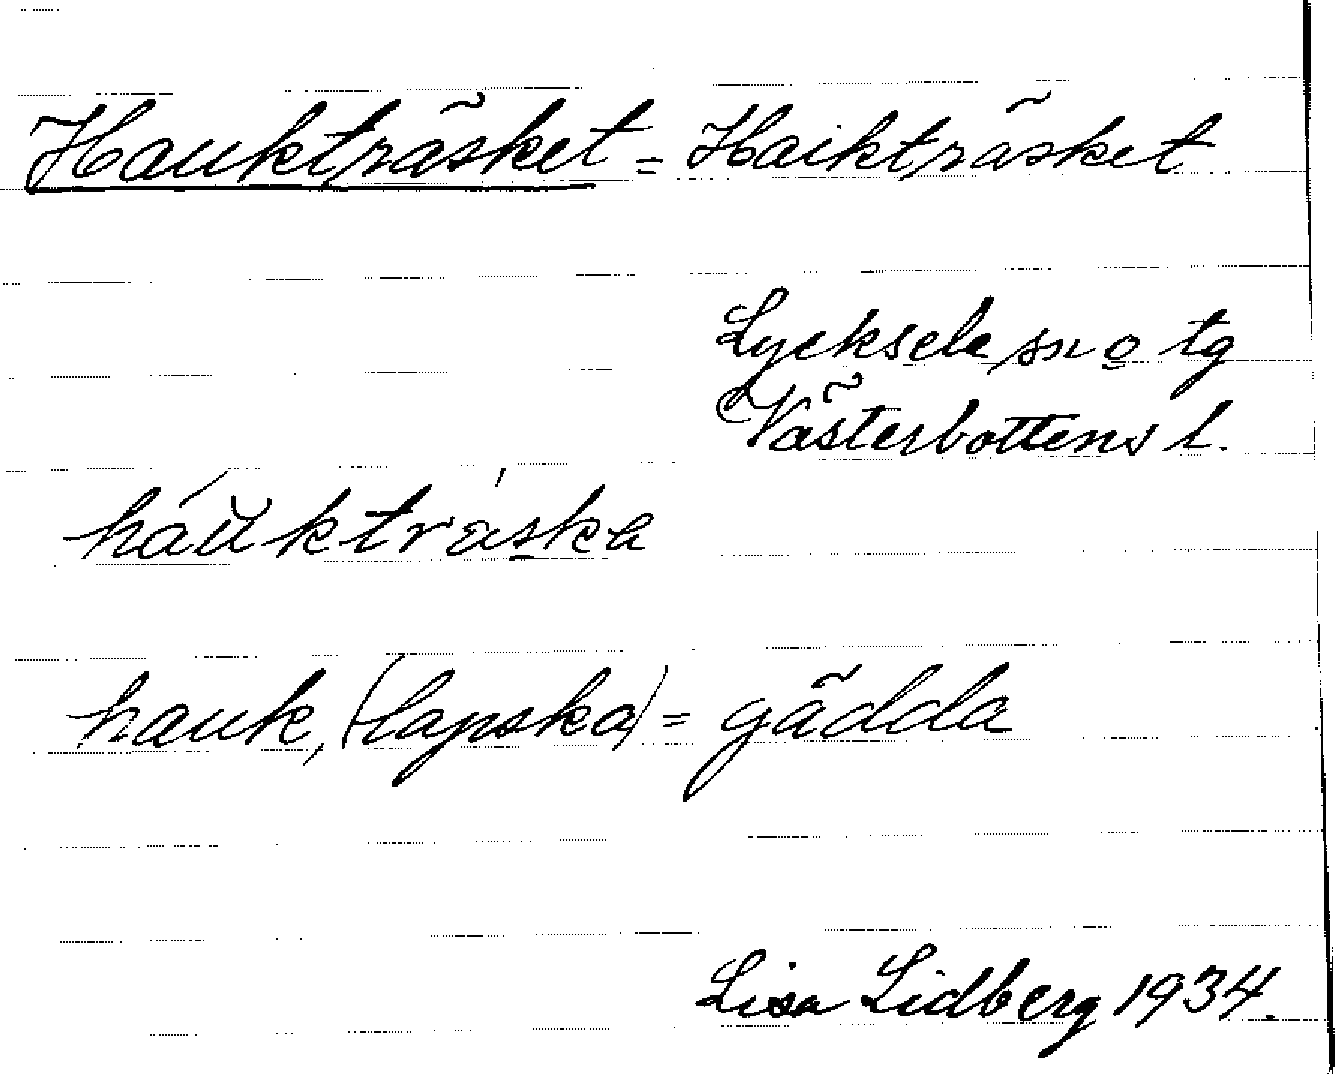 Haukträsket = Haikträsket
Lycksele sn o tg
Västerbottens l.
háŭktráska
hauk, (lapska) = gädda
Lisa Lidberg 1934.